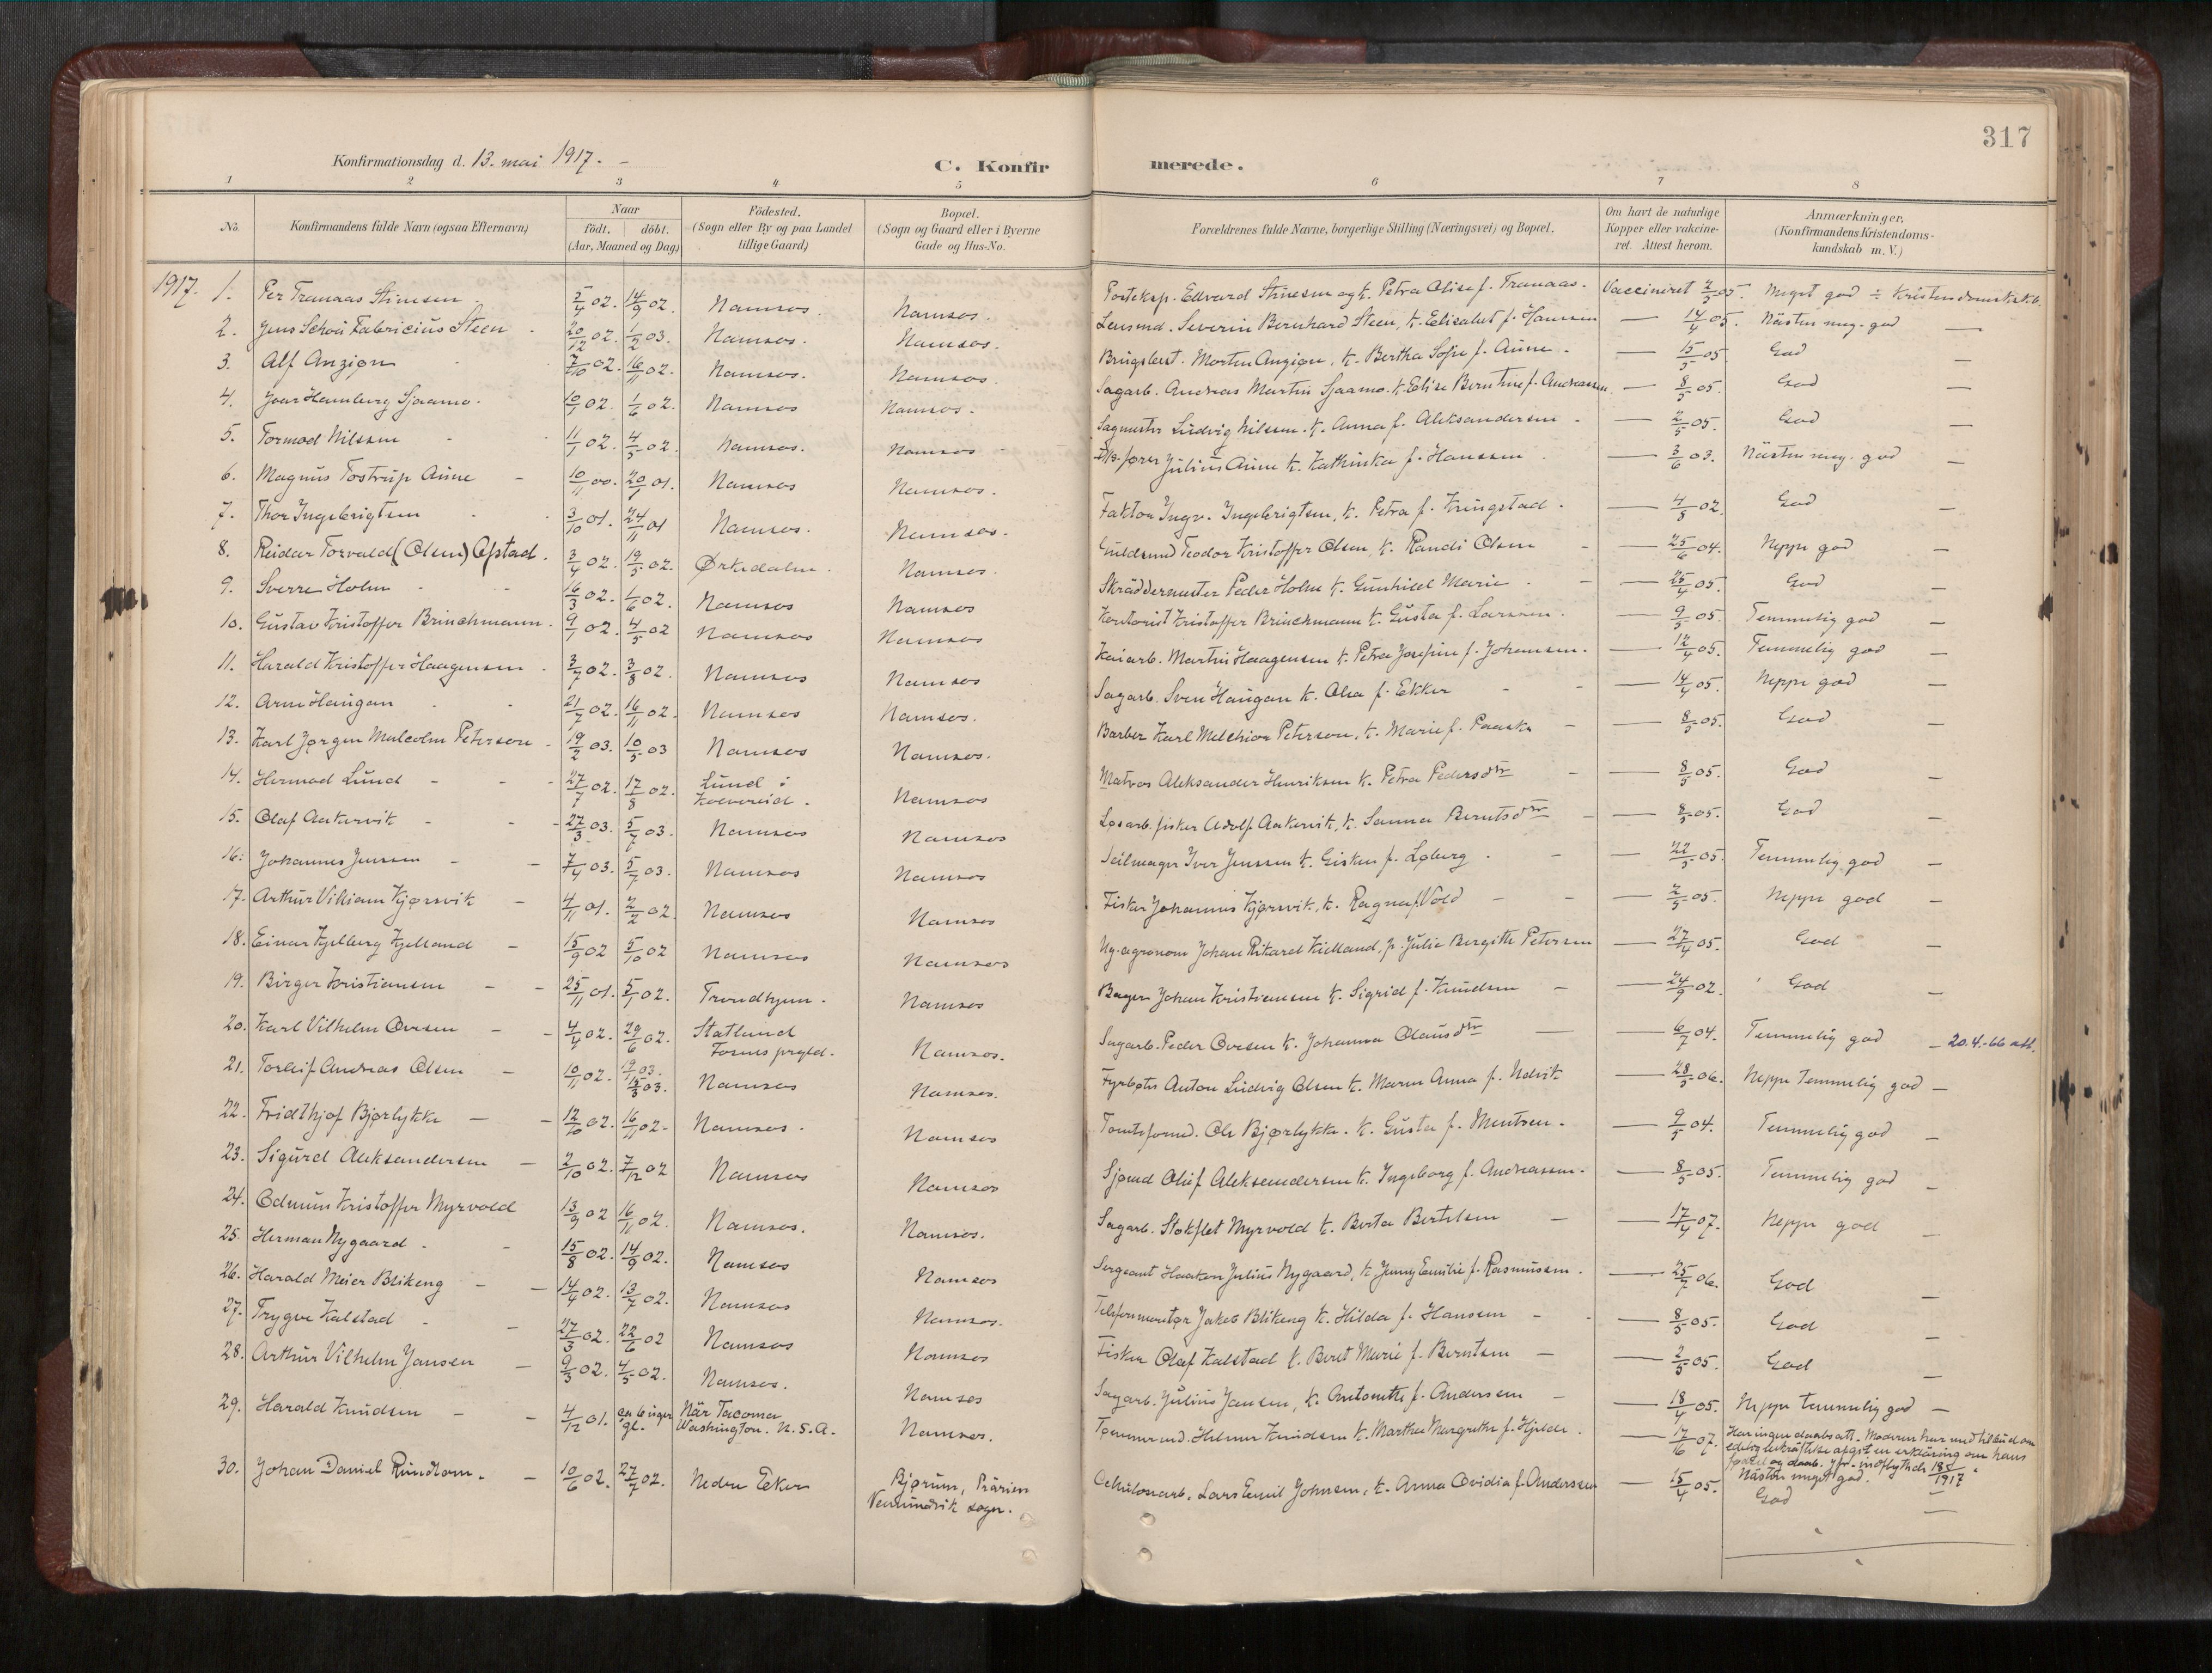 317
Konfirmationsdag d. 13. mai 1917. -
C. Konfirmerede.
1 2 3 4 5 6 7 8
No. Konfirmandens fulde Navn (ogsaa Efternavn) Naar födt. döbt. (Aar, Maaned og Dag) Födested. (Sogn eller By og paa Landet tillige Gaard) Bopæl. (Sogn og Gaard eller i Byerne Gade og Hus-No. Forældrenes fulde Navne, borgerlige Stilling (Næringsvei) og Bopæl. Om havt de naturlige Kopper eller vakcineret. Attest herom. Anmærkninger. (Konfirmandens Kristendomskundskab m. V.)
1917. 1. Per Tranaas Stinesen 5/4 02. 14/9 02. Namsos. Namsos. Posteksp. Edvard Stinesen og h. Petra Elise f. Tranaas. Vaccineret 2/5 05. Meget god
2. Jens Schou Fabricius Steen 20/12 02. 1/2 03. Namsos. Namsos. Lensmd. Severin Bernhard Steen, h. Elisabet f. Hansen — 14/4 05. Nästen meg. god —
3. Alf Anzion 7/10 02. 16/11 02. Namsos. Namsos. Morten Anzion, h. Bertha Sofie f. Aune. — 15/5 05 God —
4. Ivar Hamberg Sjaamo. 10/1 02. 1/6 02. Namsos Namsos. Sagarb. Andreas Martin Sjaamo. h. Elise Berntine f. Andreassen. — 8/5 05. God —
5. Tormod Nilssen 11/1 02. 4/5 02. Namsos. Namsos Sagmester Ludvig Nilssen. h. Anna f. Aleksandersen — 2/5 05. God —
6. Magnus Tostrup Aune 10/11 00. 20/1 01. Namsos Namsos. Julius Aune h. Kathinka f. Hanssen — 3/6 03. Nästen meg. god —
7. Thor Ingebrigtsen 3/10 01. 24/11 01 Namsos. Namsos. Faktor Ingv. Ingebrigtsen, h. Petra f. Kringstad. — 4/8 02. God —
8. Reidar Torvald (Olsen) Opstad. 3/4 02. 19/5 02. Ørkedalen. Namsos. Guldsmed Teodor Kristoffer Olsen, h. Randi Olsen — 25/6 04. Neppe god —
9. Sverre Holm 16/3 02. 1/6 02. Namsos Namsos Skräddermester Peder Holm h. Gunhild Marie — 25/4 05. God —
10. Gustav Kristoffer Brinchmann. 9/1 02. 4/5 02 Namsos Namsos Kontorist Kristoffer Brinchmann h. Gusta f. Larssen. — 9/5 05. Temmelig god —
11. Harald Kristoffer Haagensen 3/7 02. 3/8 02. Namsos Namsos Kaiarb. Martin Haagensen h. Petra Josefine f. Johansen. — 12/4 05. Temmelig god —
12. Arne Haugan 21/7 02. 16/11 02. Namsos Namsos. Sagarb. Sven Haugan h. Olea f. Ekker — 14/4 05. Neppe god —
13. Karl Jørgen Malcolm Peterson 19/2 03. 10/5 03 Namsos Namsos. Barber Karl Melchior Peterson, h. Marie f. Paaske — 8/5 05. God —
14. Hermod Lund 27/7 02. 17/8 02. Lund i Kolvereid. Namsos Matros Aleksander Henriksen h. Petra Pedersdtr — 8/5 05. God —
15. Olaf Aakervik 27/3 03. 5/7 03. Namsos Namsos Løsarb. fisker Adolf Aakervik, h. Sanna Berntsdtr — 8/5 05. God —
16. Johannes Jenssen 7/4 03. 5/7 03. Namsos Namsos Seilmager Iver Jenssen h. Gisken f. Løberg. — 22/5 05. Temmelig god —
17. Arthur Villiam Kjørsvik 4/11 01. 2/2 02. Namsos Namsos Fisker Johannes Kjørsvik, h. Ragna f. Vold — 2/5 05. Neppe god —
18. Einar Kjelberg Kjelland 15/9 02 5/10 02 Namsos Namsos Myragronom Johan Rikard Kielland, h. Julie Bergithe Petersen — 27/4 05. God —
19. Birger Kristiansen 25/11 01. 5/1 02. Trondhjem. Namsos Bager Johan Kristiansen h. Sigrid f. Knudsen — 24/9 02. God —
20. Karl Vilhelm Ovesen 4/4 02. 29/6 02. Statland Fosnes prgld. Namsos. Sagarb. Peder Ovesen h. Johanna Olausdtr — 6/7 04. Temmelig god — 20.4.-66 att.
21. Torleif Andreas Olsen 10/11 02. 15/3 03. Namsos Namsos. Fyrbøter Anton Ludvig Olsen h. Maren Anna f. Udvik — 28/5 06. Neppe temmelig god —
22. Fridthjof Bjørlykke 12/10 02. 16/11 02. Namsos. Namsos Tomteformd. Ole Bjørlykke. h. Gusta f. Mentsen. — 9/5 04. Temmelig god —
23. Sigurd Aleksandersen 2/10 02. 7/12 02 Namsos Namsos Sjømd Oluf Aleksandersen h. Ingeborg f. Andreassen. — 8/5 05. Temmelig god —
24. Edmun Kristoffer Myrvold 13/9 02 16/11 02. Namsos. Namsos. Sagarb. Stokflet Myrvold h. Berta Bertelsen — 17/4 07. Neppe god —
25. Herman Nygaard 15/8 02. 14/9 02. Namsos Namsos Sergeant Haakon Julius Nygaard, h. Jenny Emilie f. Rasmussen. — 25/7 06. God —
26. Harald Meier Blikeng 14/4 02. 13/7 02. Namsos Namsos. Telefonmontør Jakob Blikeng h. Hilda f. Hanssen — 8/5 05. God —
27. Trygve Kalstad 27/3 02. 22/6 02 Namsos Namsos Fisker Olaf Kalstad h. Beret Marie f. Berntsen — 2/5 05. God —
28. Arthur Vilhelm Jansen 9/3 02. 4/5 02. Namsos. Namsos Sagarb. Julius Jansen, h. Antonette f. Andersen — 18/4 05. Neppe temmelig god —
29. Harald Knudsen 4/12 01. ca 6 uger gl. Når Tacoma Washington. U.S.A. Namsos. Tømmermd. Helmer Knudsen h. Marthea Margrethe f. Hjelde. — 17/16 07. Har ingen daabsatt. Moderen har med tilbud om edelig bekräftelse afgit en erklärring om hans fødsel og daab. 18/5 1917 Nästen meget god.
30. Johan Daniel Rundhom. 10/6 02. 27/7 02. Nedre Eker Bjørum, Prärien Vemundvik sogn. Celulosarb. Lars Emil Johnsen, h. Anna Ovidia f. Anderssen — 15/4 05. God —